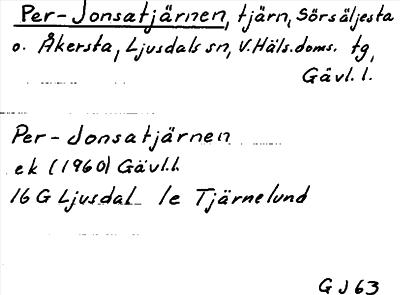 Per-Jonsatjärnen, tjärn, Sörsäljesta
o. Åkersta, Ljusdals sn, V. Häls. doms. tg,
Gävl. l.
Per-Jonsatjärnen
ek (1960) Gävl. l.
16 G Ljusdal 1e Tjärnelund
G J 63